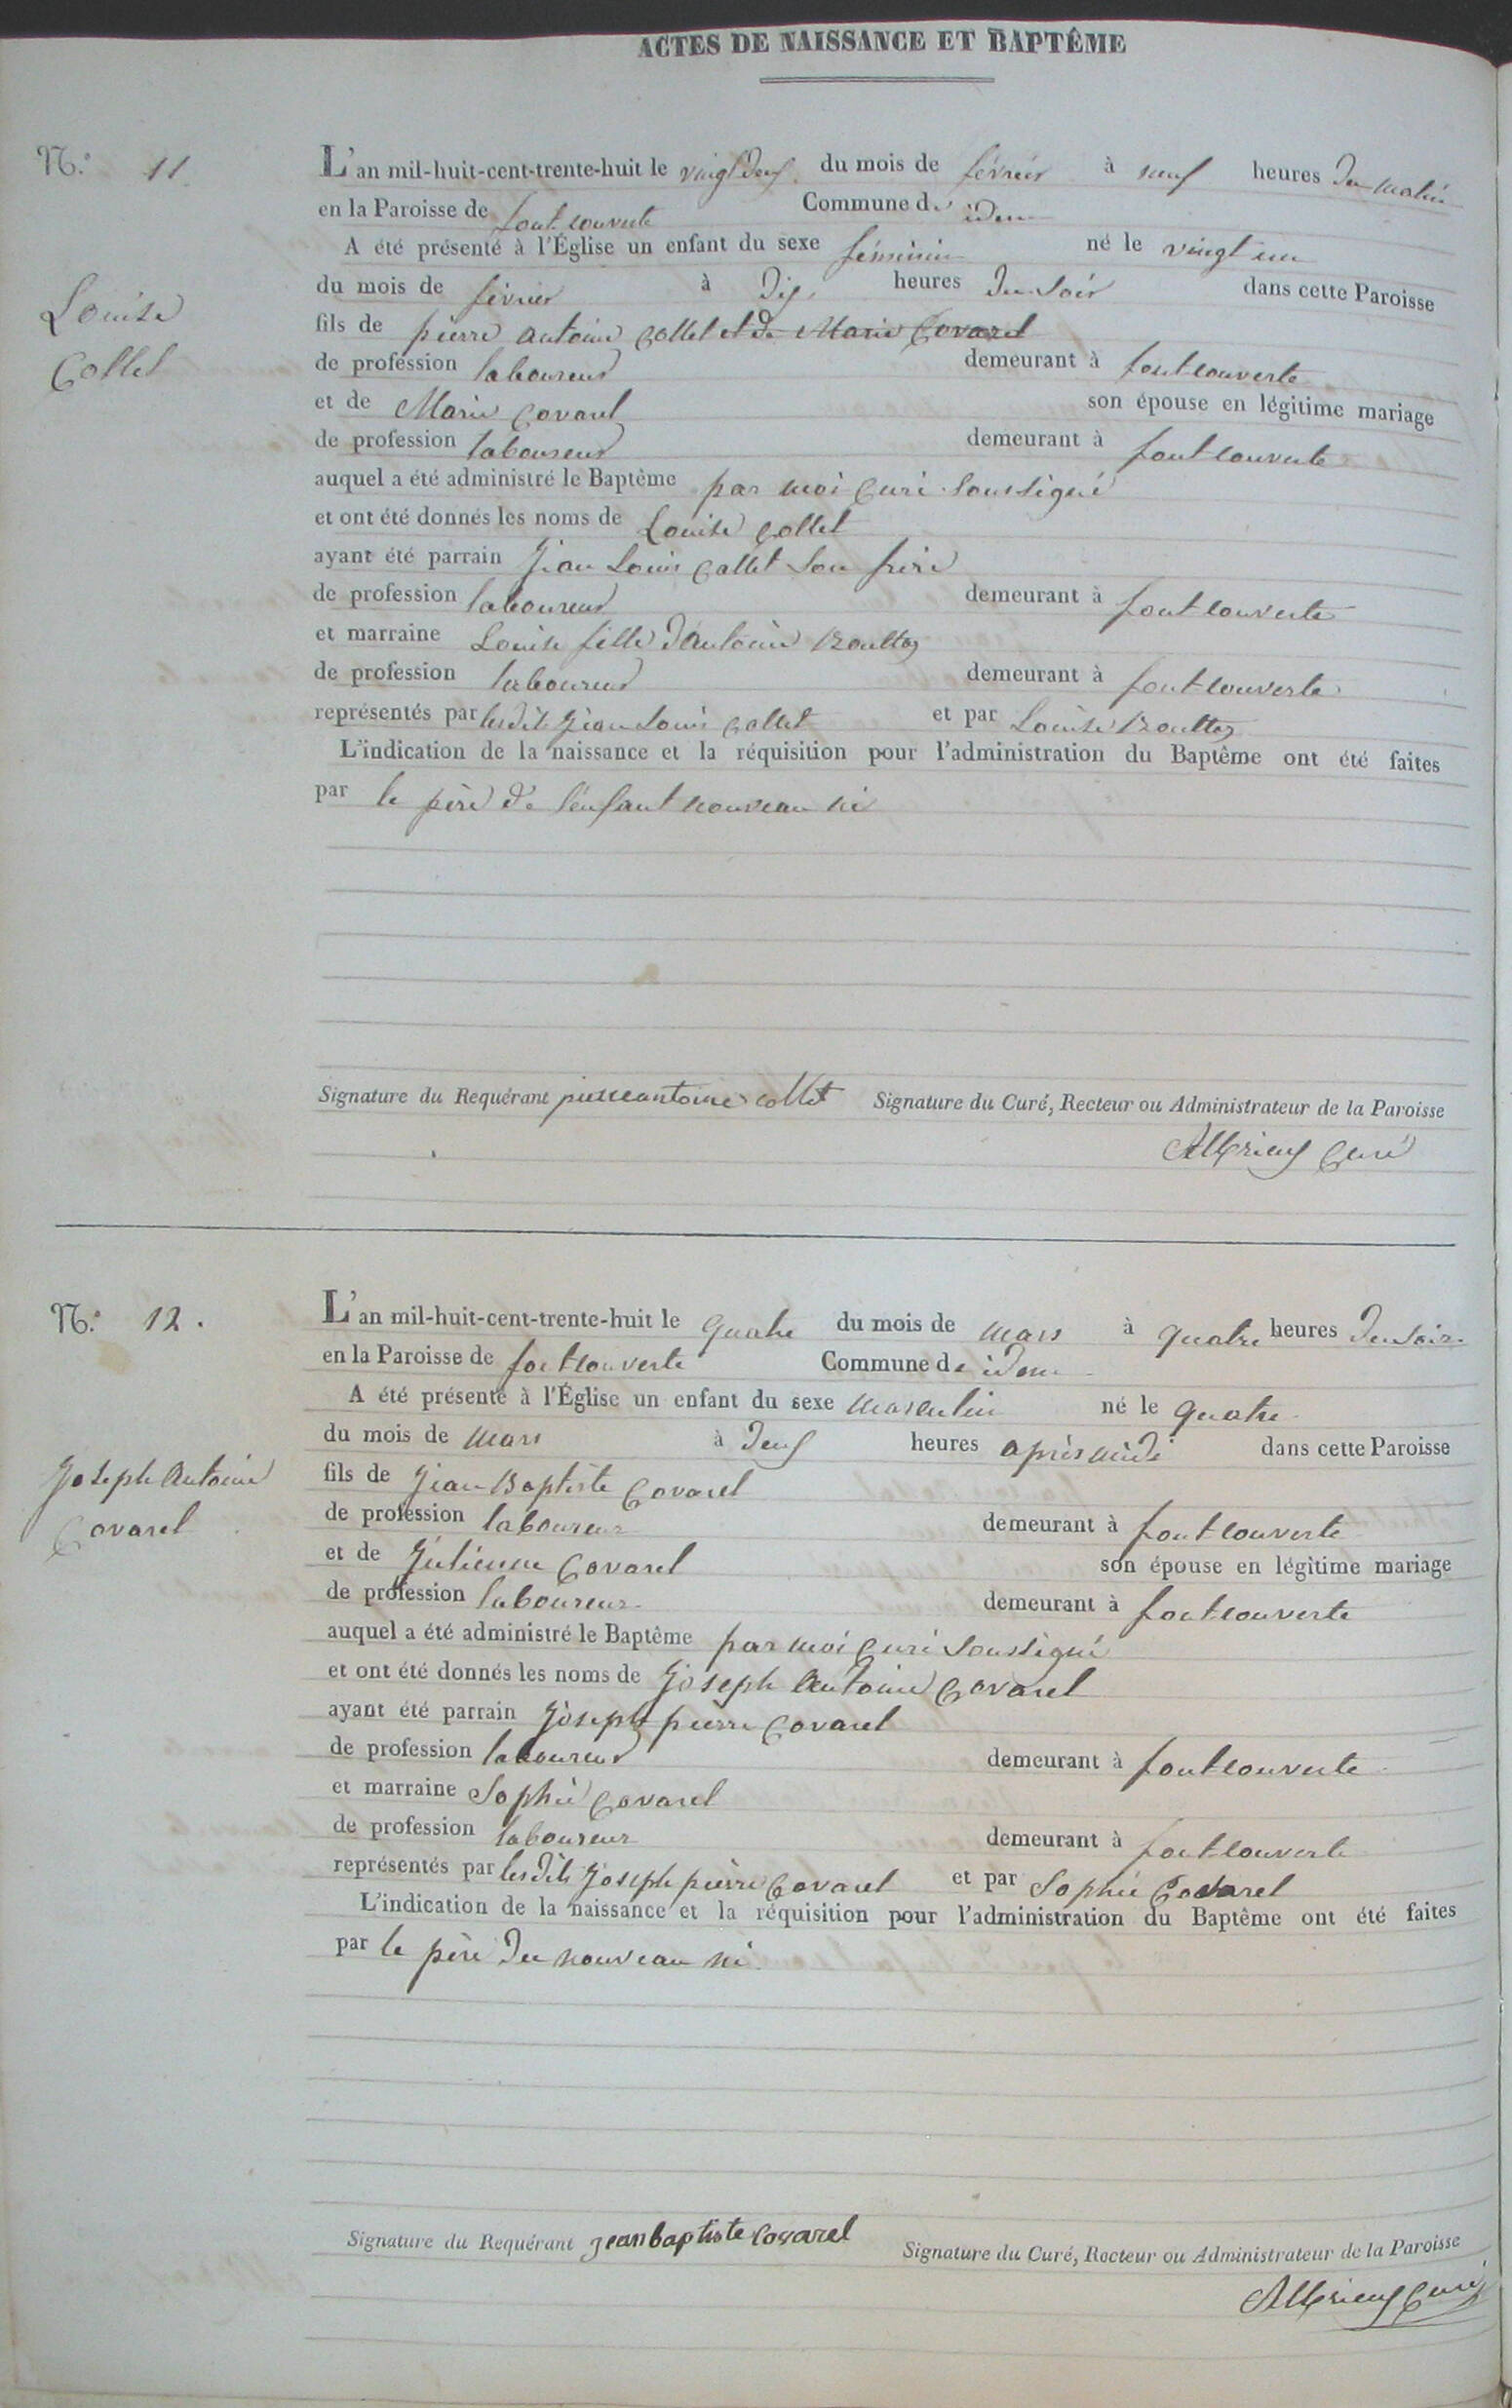 ACTES DE NAISSANCE ET BAPTÊME
N.° 11
L'an mil-huit-cent-trente-huit le vingt deux du mois de février à neuf heures du matin
en la Paroisse de fontcouverte Commune de idem
A été présenté à l'Église un enfant du sexe féminin né le vingt un
du mois de février à dix heures du soir dans cette Paroisse
Louise
Collet
fils de pierre antoine Collet et de Marie Covarel
de profession laboureur demeurant à fontcouverte
et de Marie Covarel son épouse en légitime mariage
de profession laboureur demeurant à fontcouverte
auquel a été administré le Baptême par moi Curé soussigné
et ont été donnés les noms de Louise Collet
ayant été parrain Jean Louis Collet son frère
de profession laboureur demeurant à fontcouverte
et marraine Louise fille d'antoine Routtaz
de profession laboureur demeurant à fontcouverte
représentés par lesdits Jean Louis Collet et par Louise Routtaz
L'indication de la naissance et la réquisition pour l'administration du Baptême ont été faites
par le père de l'enfant nouveau né
Signature du Requérant pierre antoine collet Signature du Curé, Recteur ou Administrateur de la Paroisse
Curé
N.° 12.
L'an mil-huit-cent-trente-huit le quatre du mois de mars à quatre heures du soir
en la Paroisse de fontcouverte Commune de idem
A été présenté à l'Église un enfant du sexe masculin né le quatre
du mois de mars à deux heures après midi dans cette Paroisse
Joseph Antoine
Covarel
fils de Jean Baptiste Covarel
de profession laboureur demeurant à fontcouverte
et de Julienne Covarel son épouse en légitime mariage
de profession laboureur demeurant à fontcouverte
auquel a été administré le Baptême par moi Curé soussigné
et ont été donnés les noms de Joseph Antoine Covarel
ayant été parrain Joseph pierre Covarel
de profession laboureur demeurant à fontcouverte
et marraine Sophie Covarel
de profession laboureur demeurant à fontcouverte
représentés par lesdits Joseph pierre Covarel et par Sophie Covarel
L'indication de la naissance et la réquisition pour l'administration du Baptême ont été faites
par le père du nouveau né
Signature du Requérant jean baptiste Covarel Signature du Curé, Recteur ou Administrateur de la Paroisse
Curé